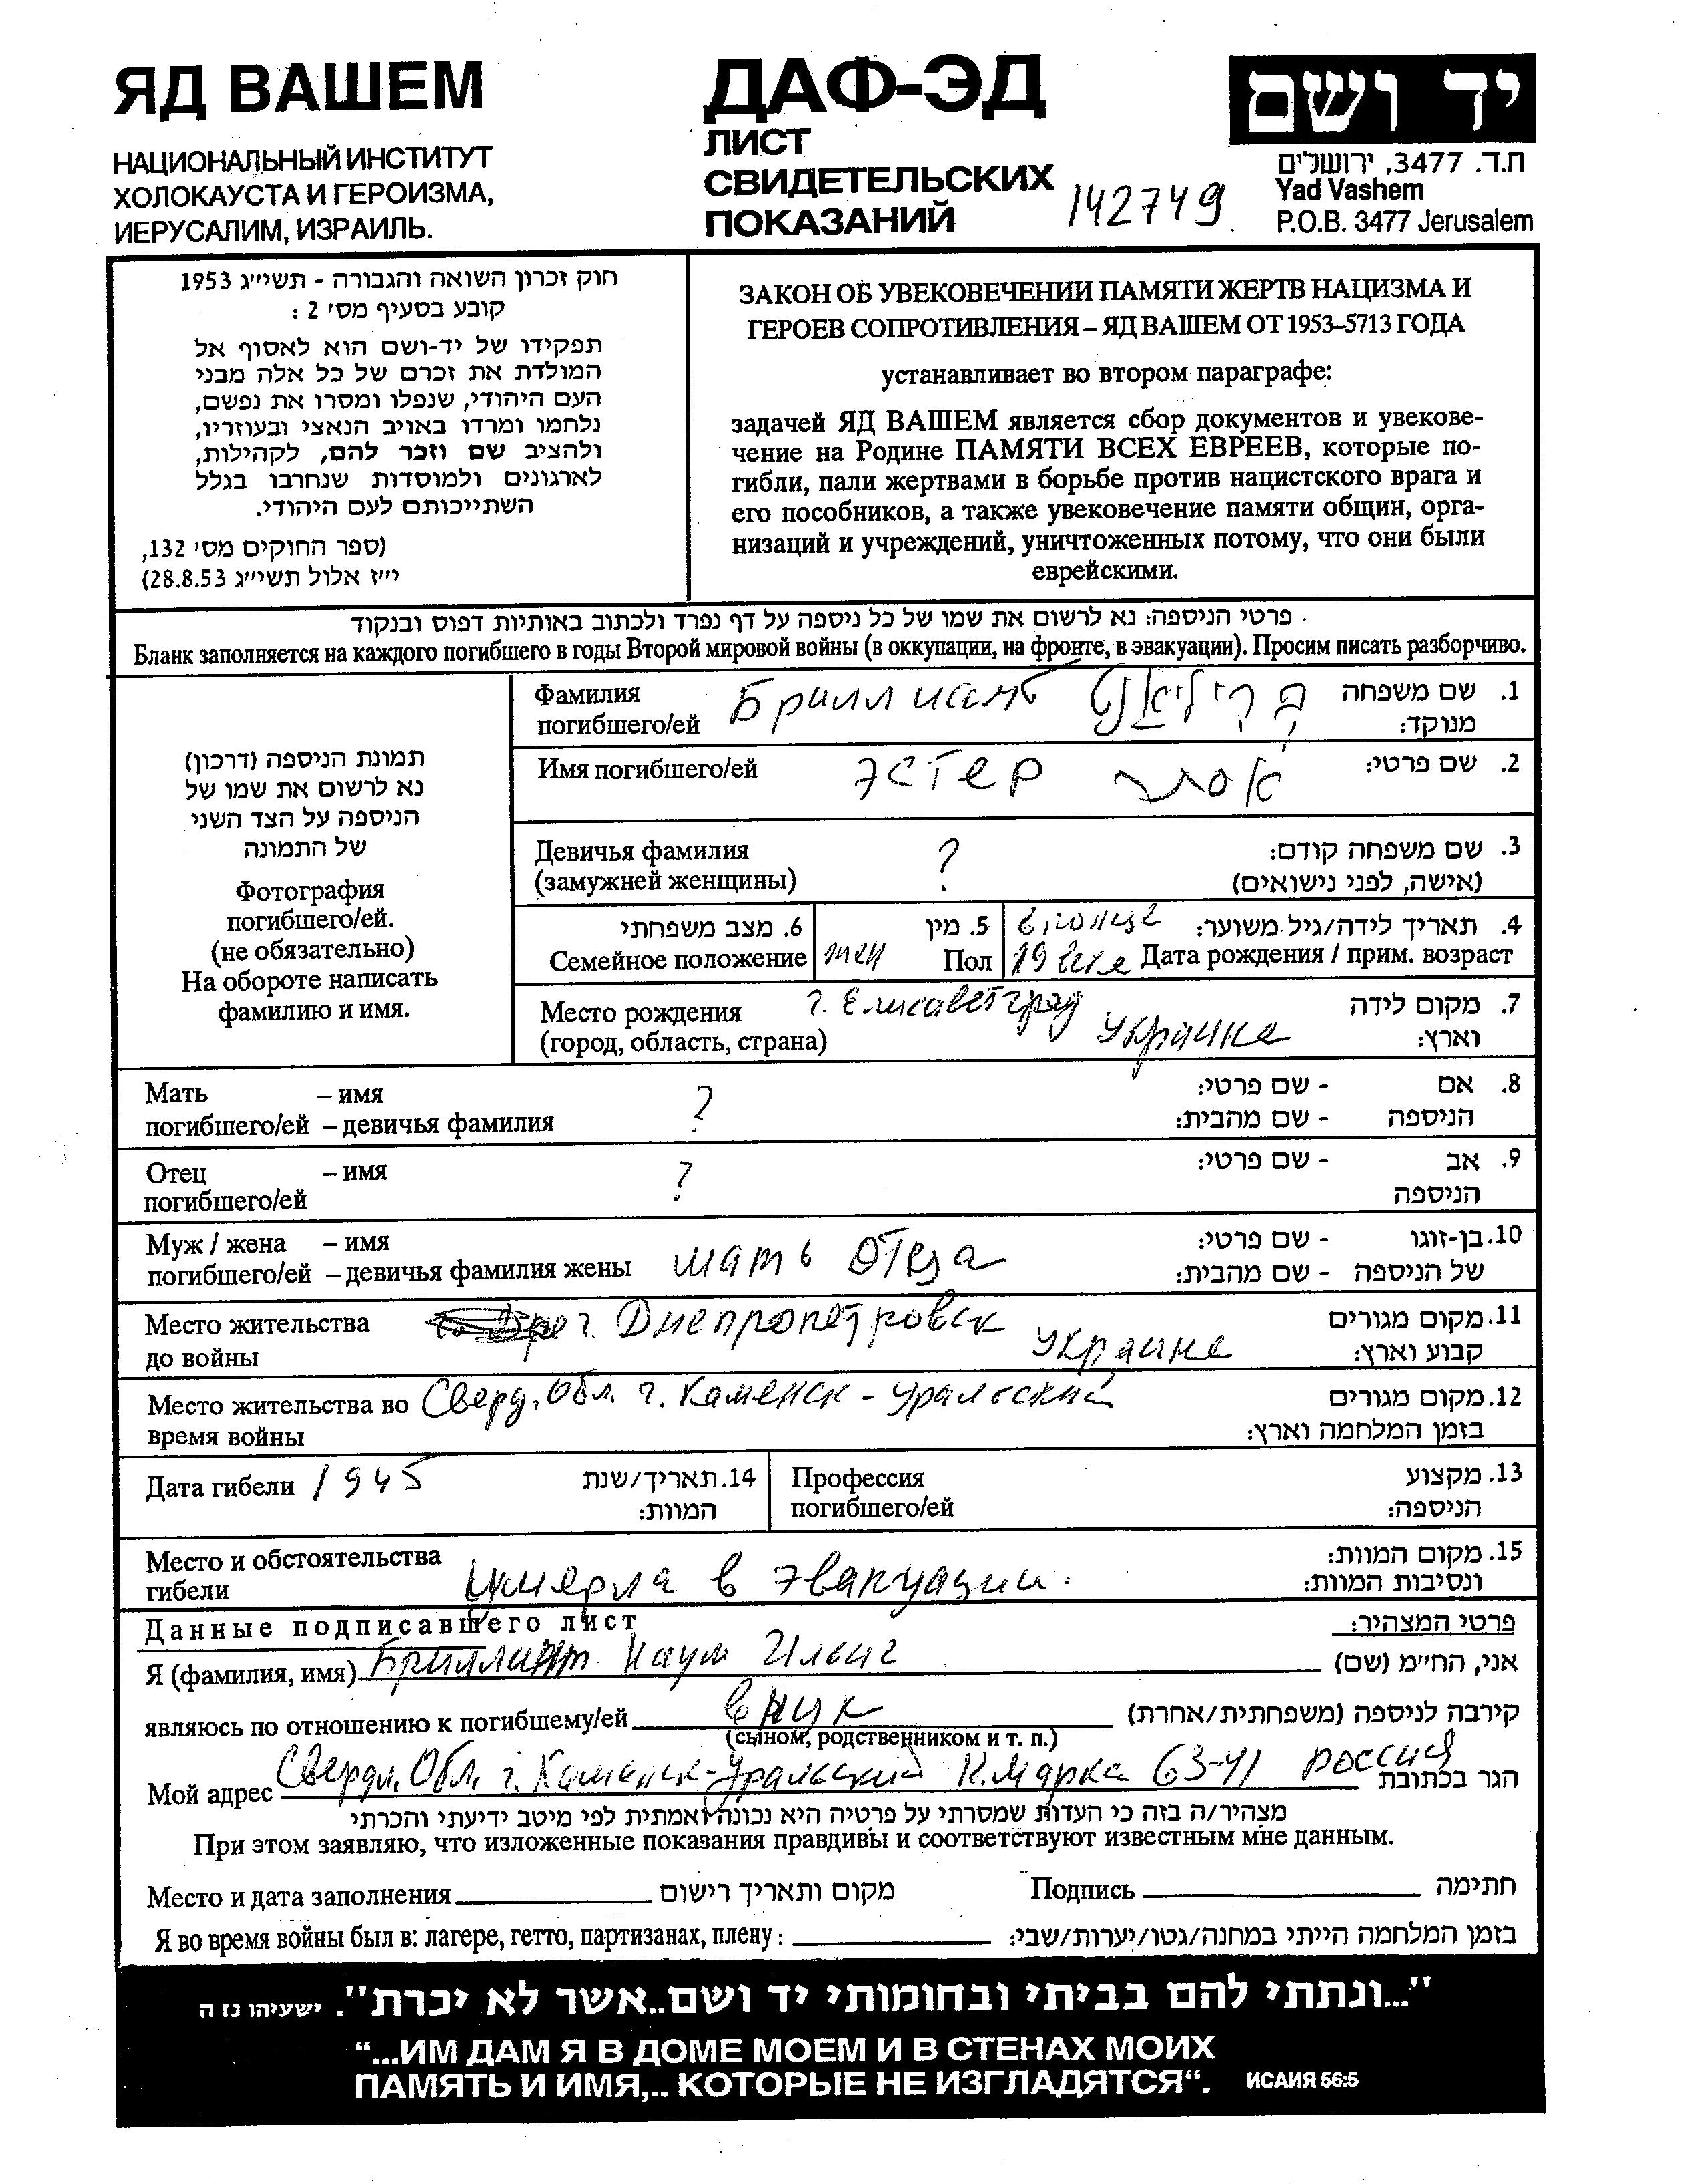 ЯД ВАШЕМ
НАЦИОНАЛЬНЫЙ ИНСТИТУТ
ХОЛОКАУСТА И ГЕРОИЗМА,
ИЕРУСАЛИМ, ИЗРАИЛЬ.
ДАФ-ЭД
ЛИСТ
СВИДЕТЕЛЬСКИХ
ПОКАЗАНИЙ
142749
יד ושם
ת.ד. 3477, ירושלים
Yad Vashem
P.O.B. 3477 Jerusalem
חוק זכרון השואה והגבורה - תשי״ג 1953
קובע בסעיף מס׳ 2 :
תפקידו של יד-ושם הוא לאסוף אל
המולדת את זכרם של כל אלה מבני
העם היהודי, שנפלו ומסרו את נפשם,
נלחמו ומרדו באויב הנאצי ובעוזריו,
ולהציב שם וזכר להם, לקהילות,
לארגונים ולמוסדות שנחרבו בגלל
השתייכותם לעם היהודי.
(ספר החוקים מס׳ 132,
י״ז אלול תשי״ג 28.8.53)
ЗАКОН ОБ УВЕКОВЕЧЕНИИ ПАМЯТИ ЖЕРТВ НАЦИЗМА И
ГЕРОЕВ СОПРОТИВЛЕНИЯ – ЯД ВАШЕМ ОТ 1953–5713 ГОДА
устанавливает во втором параграфе:
задачей ЯД ВАШЕМ является сбор документов и увекове-
чение на Родине ПАМЯТИ ВСЕХ ЕВРЕЕВ, которые по-
гибли, пали жертвами в борьбе против нацистского врага и
его пособников, а также увековечение памяти общин, орга-
низаций и учреждений, уничтоженных потому, что они были
еврейскими.
פרטי הניספה: נא לרשום את שמו של כל ניספה על דף נפרד ולכתוב באותיות דפוס ובנקוד
Бланк заполняется на каждого погибшего в годы Второй мировой войны (в оккупации, на фронте, в эвакуации). Просим писать разборчиво.
תמונת הניספה (דרכון)
נא לרשום את שמו של
הניספה על הצד השני
של התמונה
Фотография
погибшего/ей.
(не обязательно)
На обороте написать
фамилию и имя.
Фамилия Бриллиант ברילیאנט 1. שם משפחה
погибшего/ей מנוקד:
Имя погибшего/ей ЭСТЕР אסתר 2. שם פרטי:
Девичья фамилия ? 3. שם משפחה קודם:
(замужней женщины) (אישה, לפני נישואים)
6. מצב משפחתי 5. מין в конце 4. תאריך לידה/גיל משוער:
Семейное положение Пол 19 веке Дата рождения / прим. возраст
Место рождения г. Елисаветград Украина 7. מקום לידה
(город, область, страна) וארץ:
Мать – имя ? - שם פרטי: 8. אם
погибшего/ей – девичья фамилия - שם מהבית: הניספה
Отец – имя ? - שם פרטי: 9. אב
погибшего/ей הניספה
Муж / жена – имя мать отца - שם פרטי: 10. בן-זוגו
погибшего/ей – девичья фамилия жены - שם מהבית: של הניספה
Место жительства г. Днепропетровск Украине 11. מקום מגורים
до войны קבוע וארץ:
Место жительства во Сверд. Обл. г. Каменск-Уральский 12. מקום מגורים
время войны בזמן המלחמה וארץ:
Дата гибели 1945 14. תאריך/שנת Профессия 13. מקצוע
המוות: погибшего/ей הניספה:
Место и обстоятельства 15. מקום המוות:
гибели Умерла в эвакуации. ונסיבות המוות:
Данные подписавшего лист פרטי המצהיר:
Я (фамилия, имя) Бриллиант Наум Ильич אני, החי״מ (שם)
являюсь по отношению к погибшему/ей внук קירבה לניספה (משפחתית/אחרת)
(сыном, родственником и т. п.)
Мой адрес Свердл. Обл. г. Каменск-Уральский К. Маркса 63-41 Россия הגר בכתובת
מצהיר/ה בזה כי העדות שמסרתי על פרטיה היא נכונה ואמתית לפי מיטב ידיעתי והכרתי
При этом заявляю, что изложенные показания правдивы и соответствуют известным мне данным.
Место и дата заполнения מקום ותאריך רישום Подпись חתימה
Я во время войны был в: лагере, гетто, партизанах, плену : בזמן המלחמה הייתי במחנה/גטו/יערות/שבי:
"...ונתתי להם בביתי ובחומותי יד ושם..אשר לא יכרת". ישעיהו נז ה
“...ИМ ДАМ Я В ДОМЕ МОЕМ И В СТЕНАХ МОИХ
ПАМЯТЬ И ИМЯ,.. КОТОРЫЕ НЕ ИЗГЛАДЯТСЯ“. ИСАИЯ 56:5